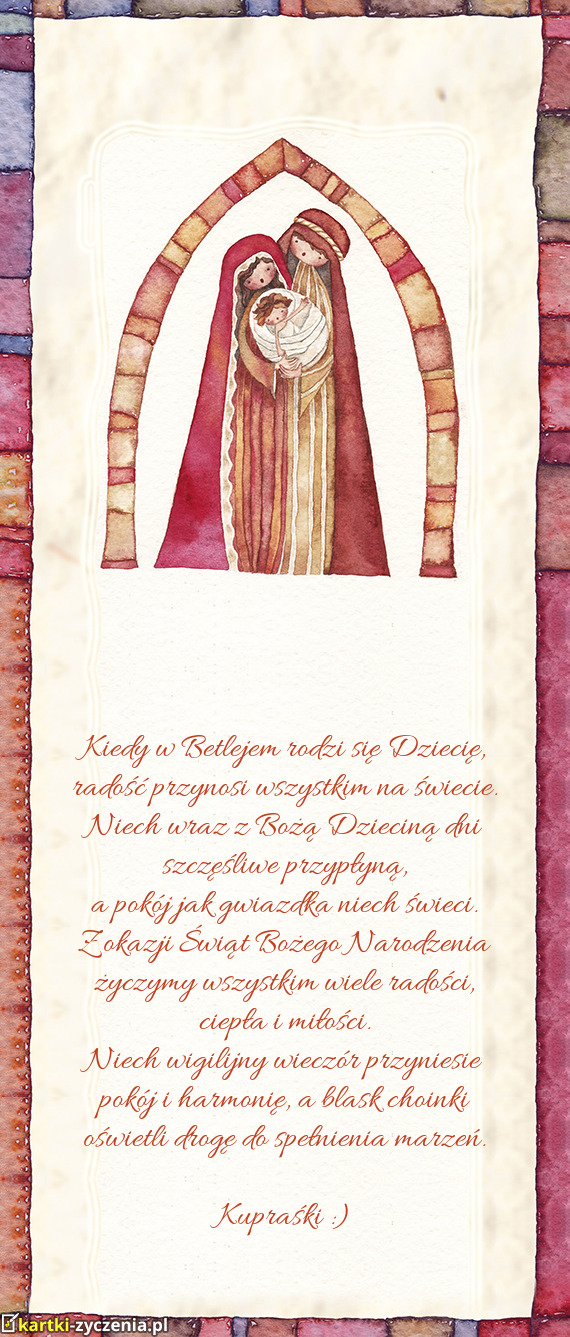 Kiedy w Betlejem rodzi się Dziecię,
radość przynosi wszystkim na świecie.
Niech wraz z Bożą Dzieciną dni
szczęśliwe przypłyną,
a pokój jak gwiazdka niech świeci.
Z okazji Świąt Bożego Narodzenia
życzymy wszystkim wiele radości,
ciepła i miłości.
Niech wigilijny wieczór przyniesie
pokój i harmonię, a blask choinki
oświetli drogę do spełnienia marzeń.
Kupraśki :)
kartki-zyczenia.pl